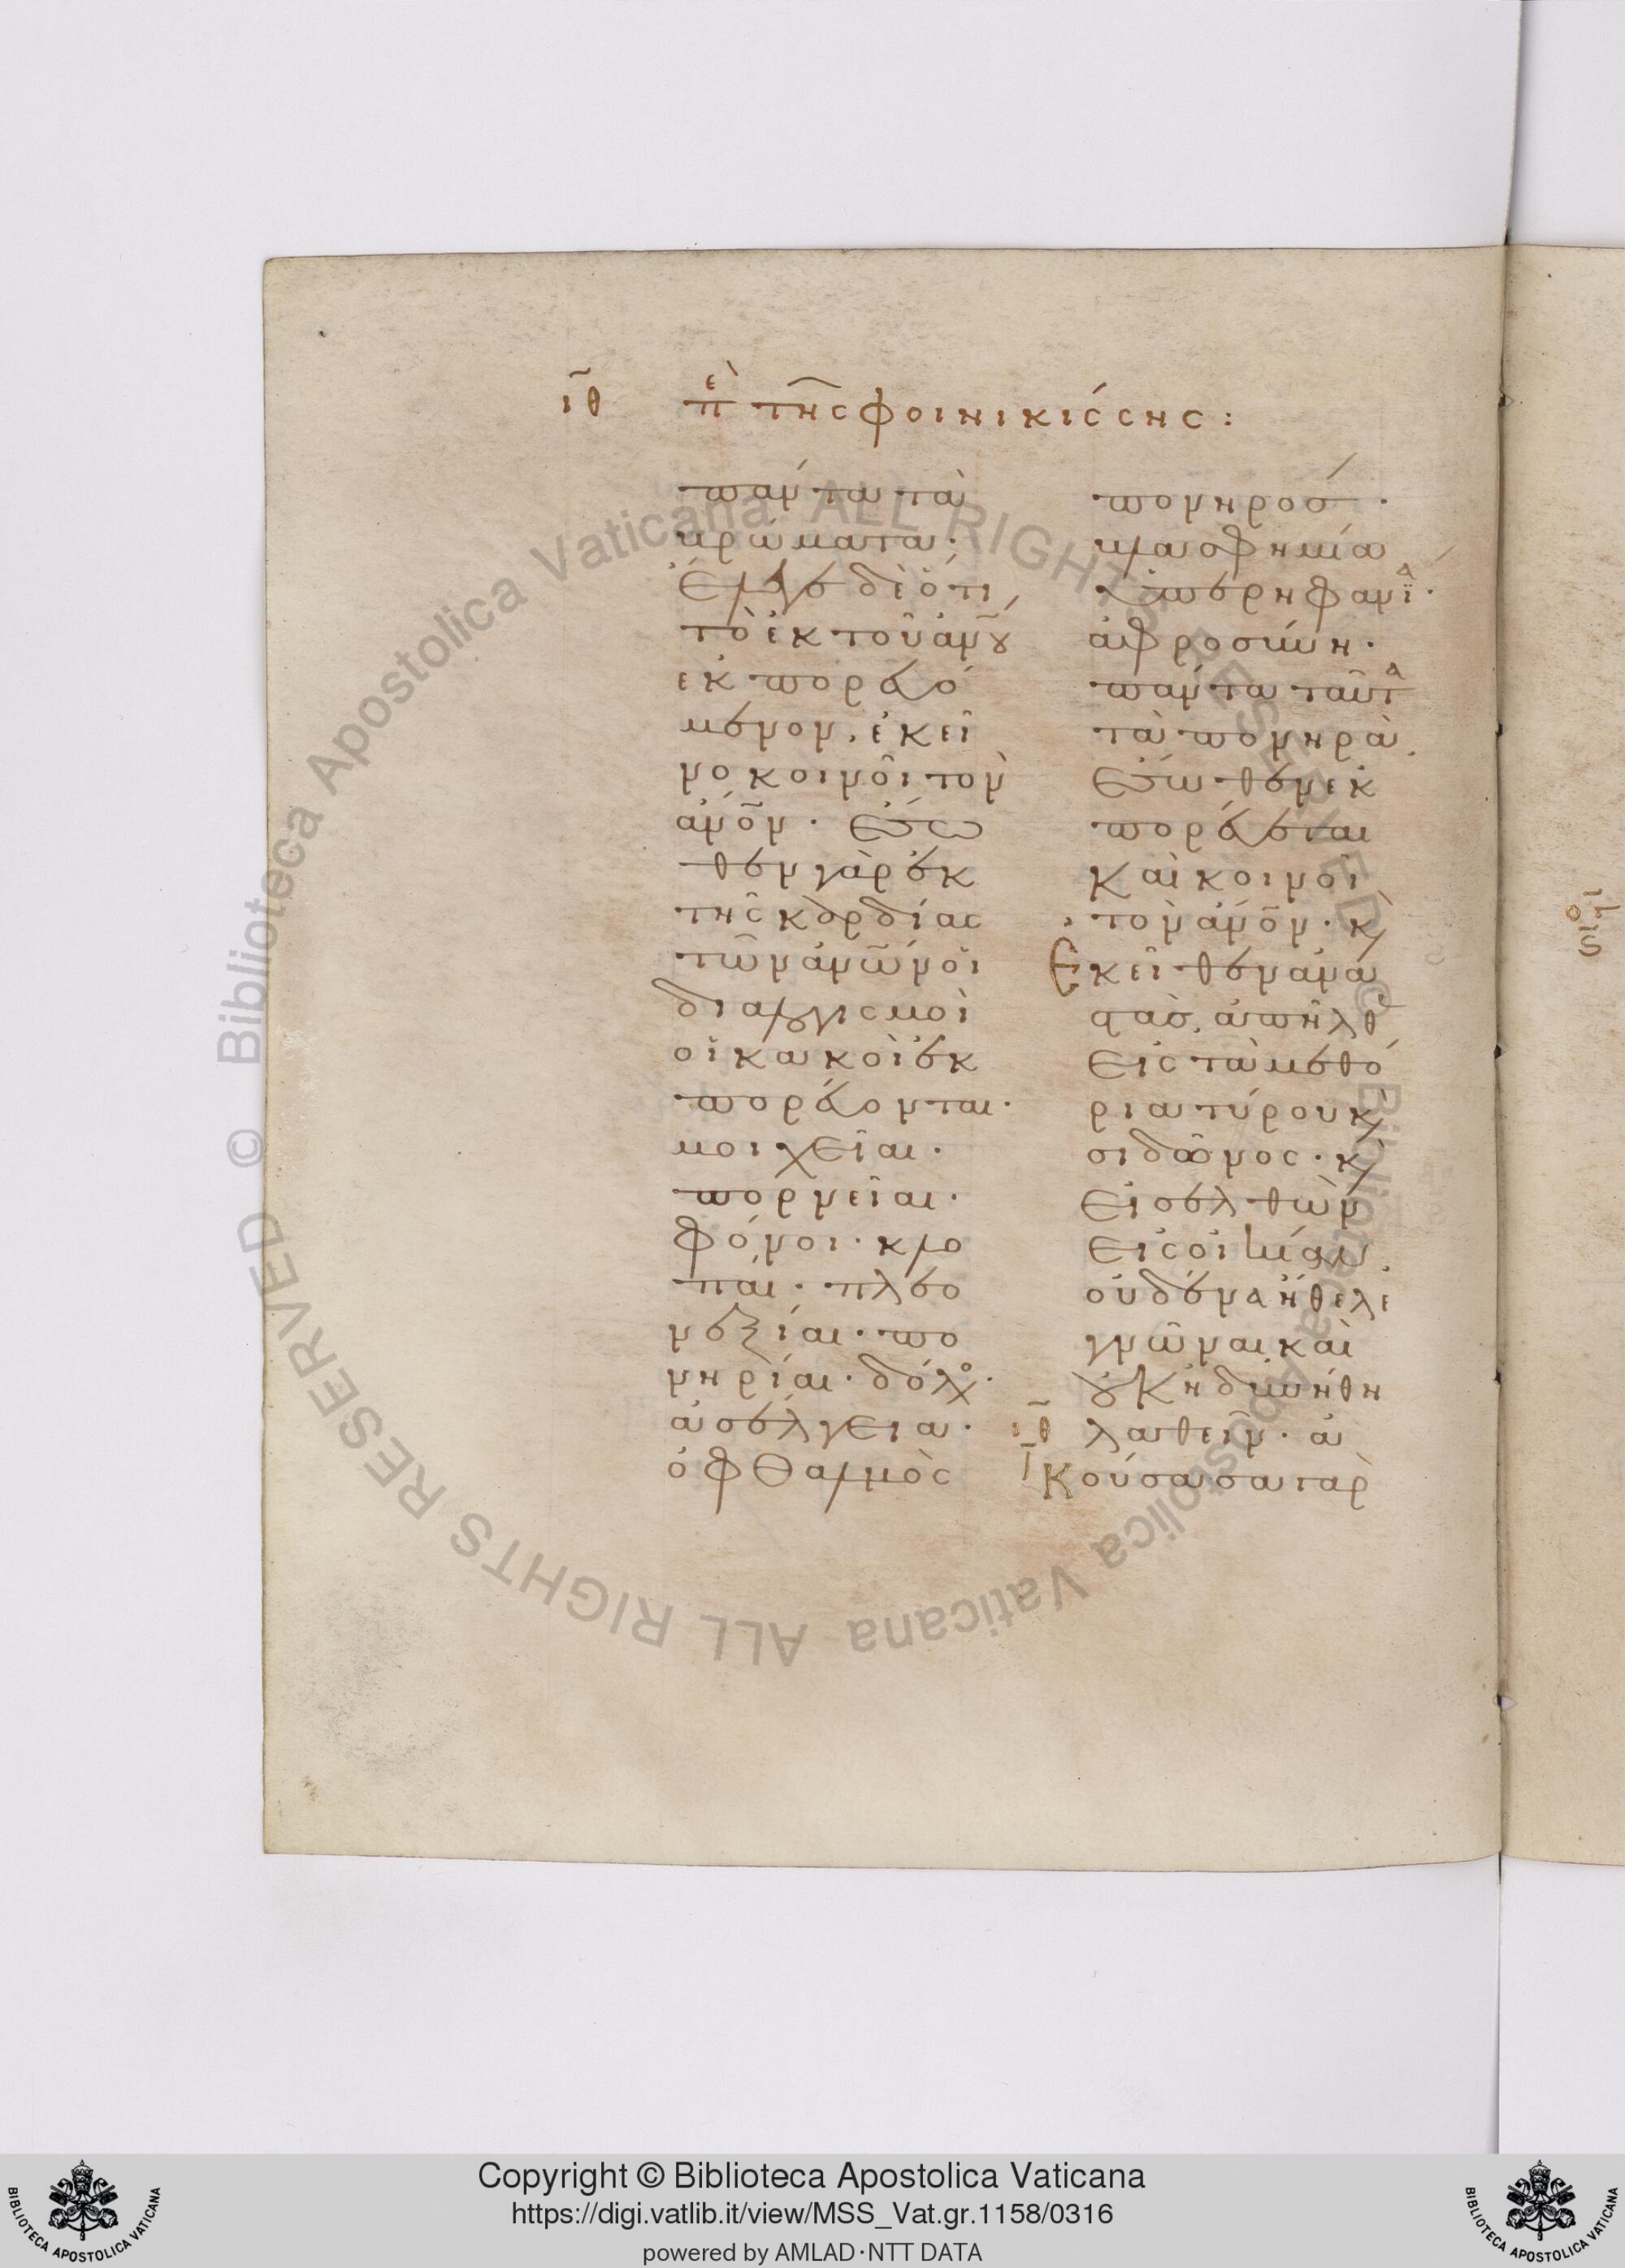 ιθ πε τῆς φοινικίσσης :
πάντα τὰ
βρώματα·
ἔλεγε δὲ ὅτι
τὸ ἐκ τοῦ ἀνου
ἐκπορευό
μενον, ἐκεῖ
νο κοινοῖ τὸν
ἀνον· ἔσω
θεν γὰρ ἐκ
τῆς καρδίας
τῶν ἀνων οἱ
διαλογισμοὶ
οἱ κακοὶ ἐκ
πορεύονται·
μοιχεῖαι·
πορνεῖαι·
φόνοι· κλο
παί· πλεο
νεξίαι· πο
νηρίαι· δόλος·
ἀσέλγεια·
ὀφθαλμὸς
πονηρός·
βλασφημία
ὑπερηφανία·
ἀφροσύνη·
πάντα ταῦτα
τὰ πονηρὰ
ἔσωθεν ἐκ
πορεύεται
καὶ κοινοῖ
τὸν ἀνον· κ
Ἐκεῖθεν ἀνα
στὰς, ἀπῆλθ
εἰς τὰ μεθό
ρια τύρου κ
σιδῶνος· κ
εἰσελθὼν
εἰς οἰκίαν,
οὐδένα ἤθελε
γνῶναι, καὶ
οὐκ ἠδυνήθη
ιθ λαθεῖν· ἀ
κούσασα γὰρ
Copyright © Biblioteca Apostolica Vaticana
https://digi.vatlib.it/view/MSS_Vat.gr.1158/0316
powered by AMLAD·NTT DATA
BIBLIOTECA APOSTOLICA VATICANA
BIBLIOTECA APOSTOLICA VATICANA
© Biblioteca Apostolica Vaticana ALL RIGHTS RESERVED
© Biblioteca Apostolica Vaticana ALL RIGHTS RESERVED